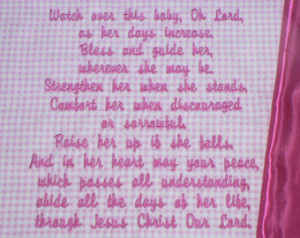 Watch over this baby, Oh Lord,
as her days increase.
Bless and guide her,
wherever she may be.
Strengthen her when she stands,
Comfort her when discouraged
or sorrowful.
Raise her up if she falls.
And in her heart may your peace,
which passes all understanding,
abide all the days of her life,
through Jesus Christ Our Lord.